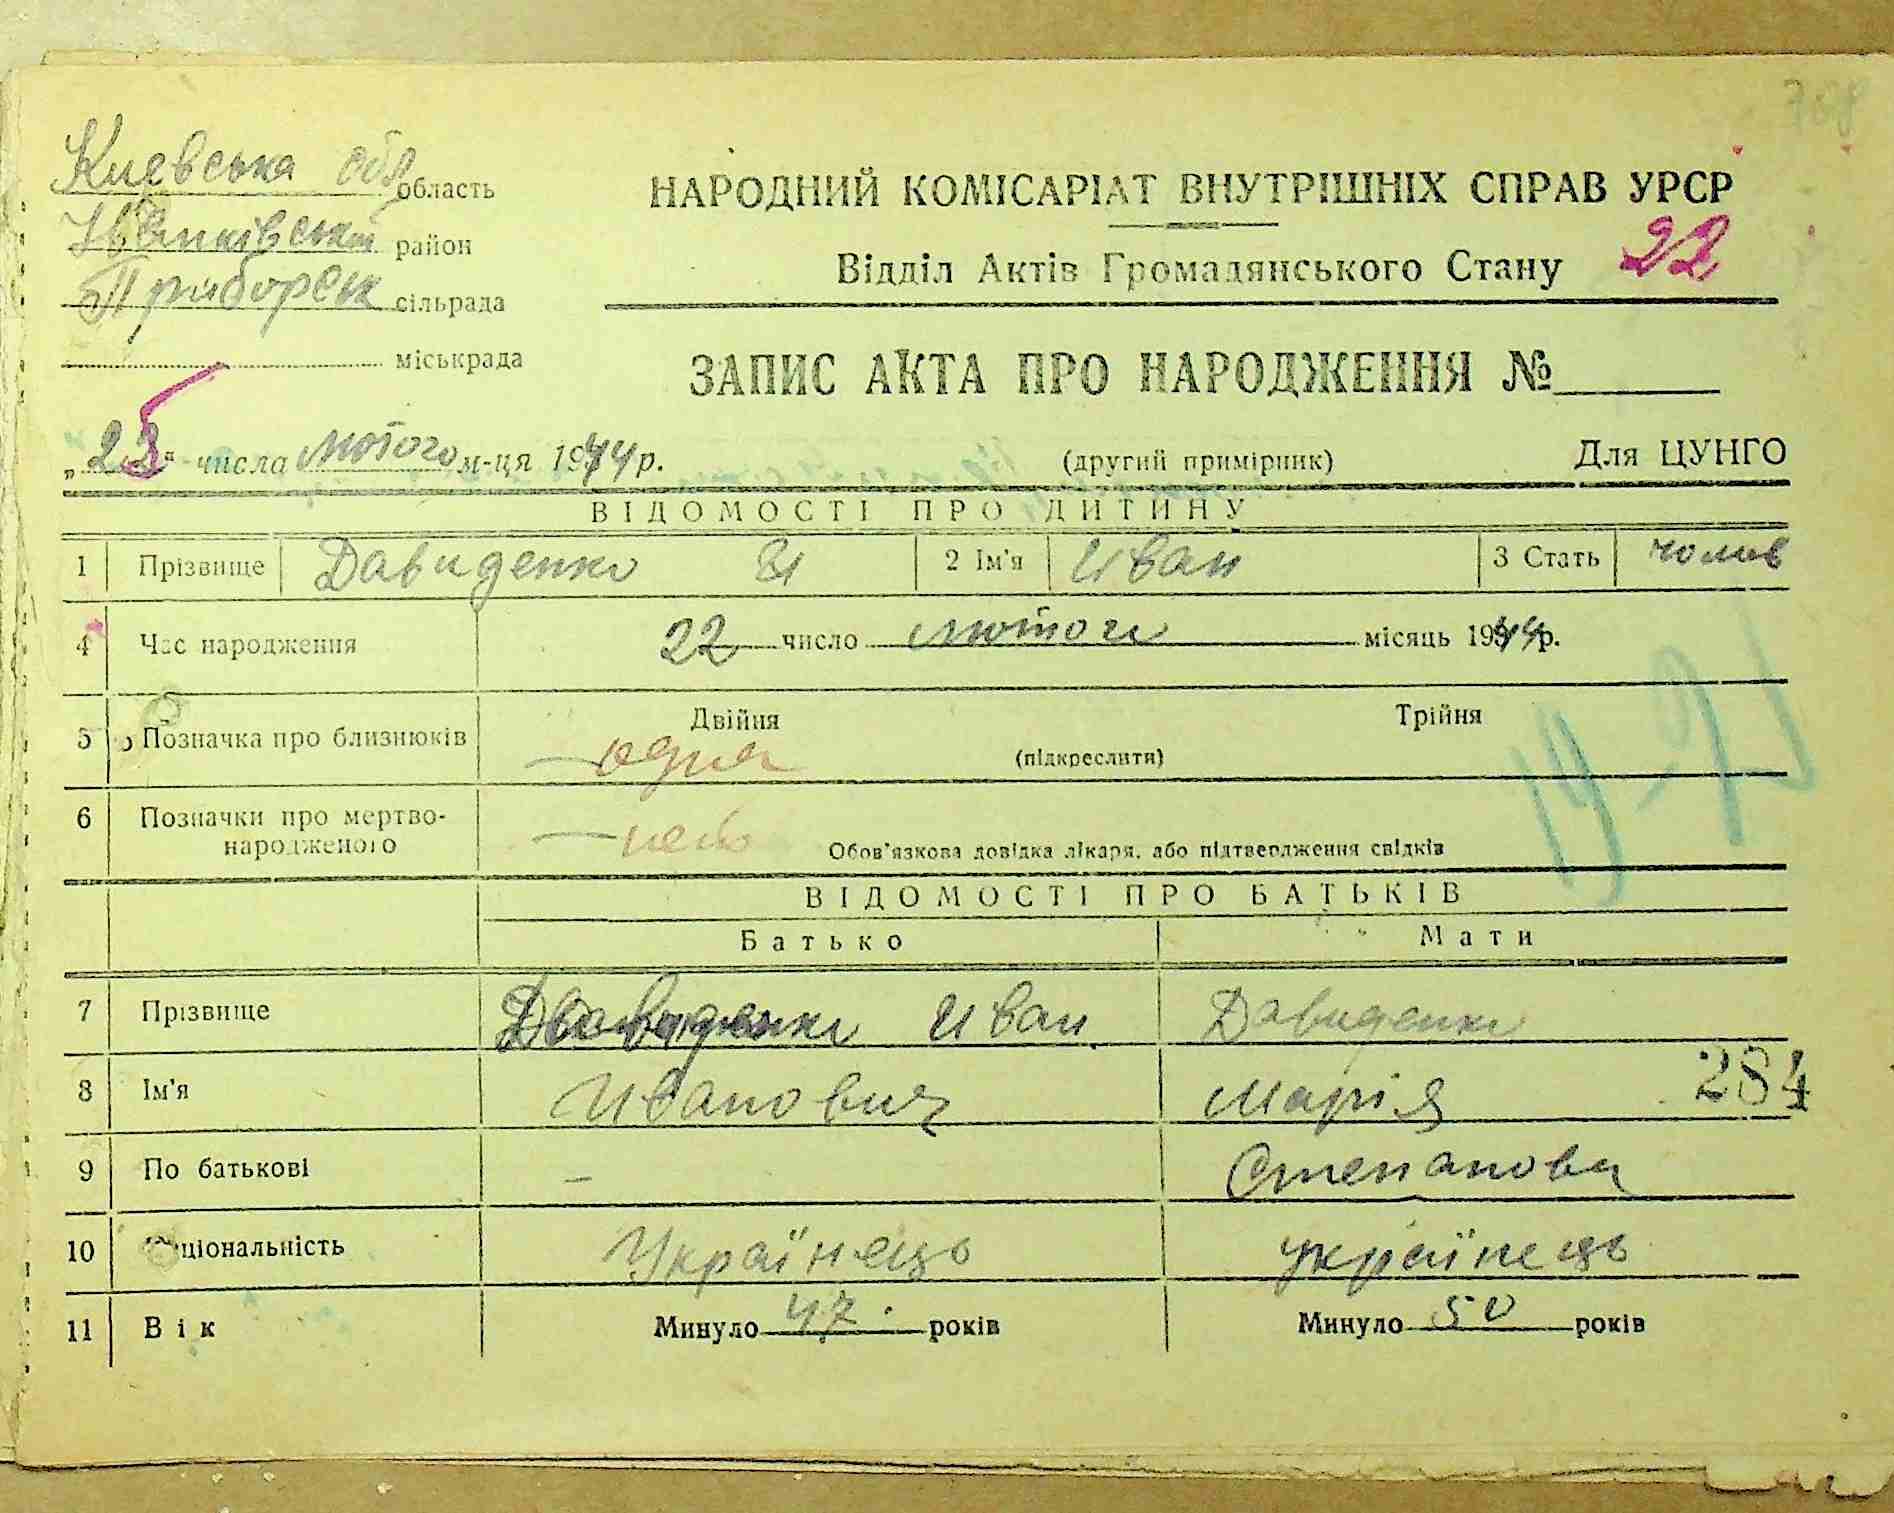 Киевська обл область
Іванківський район
Приборськ сільрада
міськрада
НАРОДНИЙ КОМІСАРІАТ ВНУТРІШНІХ СПРАВ УРСР
Відділ Актів Громадянського Стану 22
ЗАПИС АКТА ПРО НАРОДЖЕННЯ №
„25" числа лютого м-ця 1944 р.
(другий примірник)
Для ЦУНГО
ВІДОМОСТІ ПРО ДИТИНУ
1 Прізвище Давиденко И 2 Ім'я Иван 3 Стать чолов
4 Час народження 22 число лютого місяць 1944 р.
5 Позначка про близнюків Двійня Трійня
одна (підкреслити)
6 Позначки про мертвонародженого
Обов'язкова довідка лікаря, або підтвердження свідків
ВІДОМОСТІ ПРО БАТЬКІВ
Батько Мати
7 Прізвище Давиденко Иван Давиденко
8 Ім'я Иванович Марія 284
9 По батькові – Степанови
10 Національність Українець українець
11 Вік Минуло 47 років Минуло 50 років